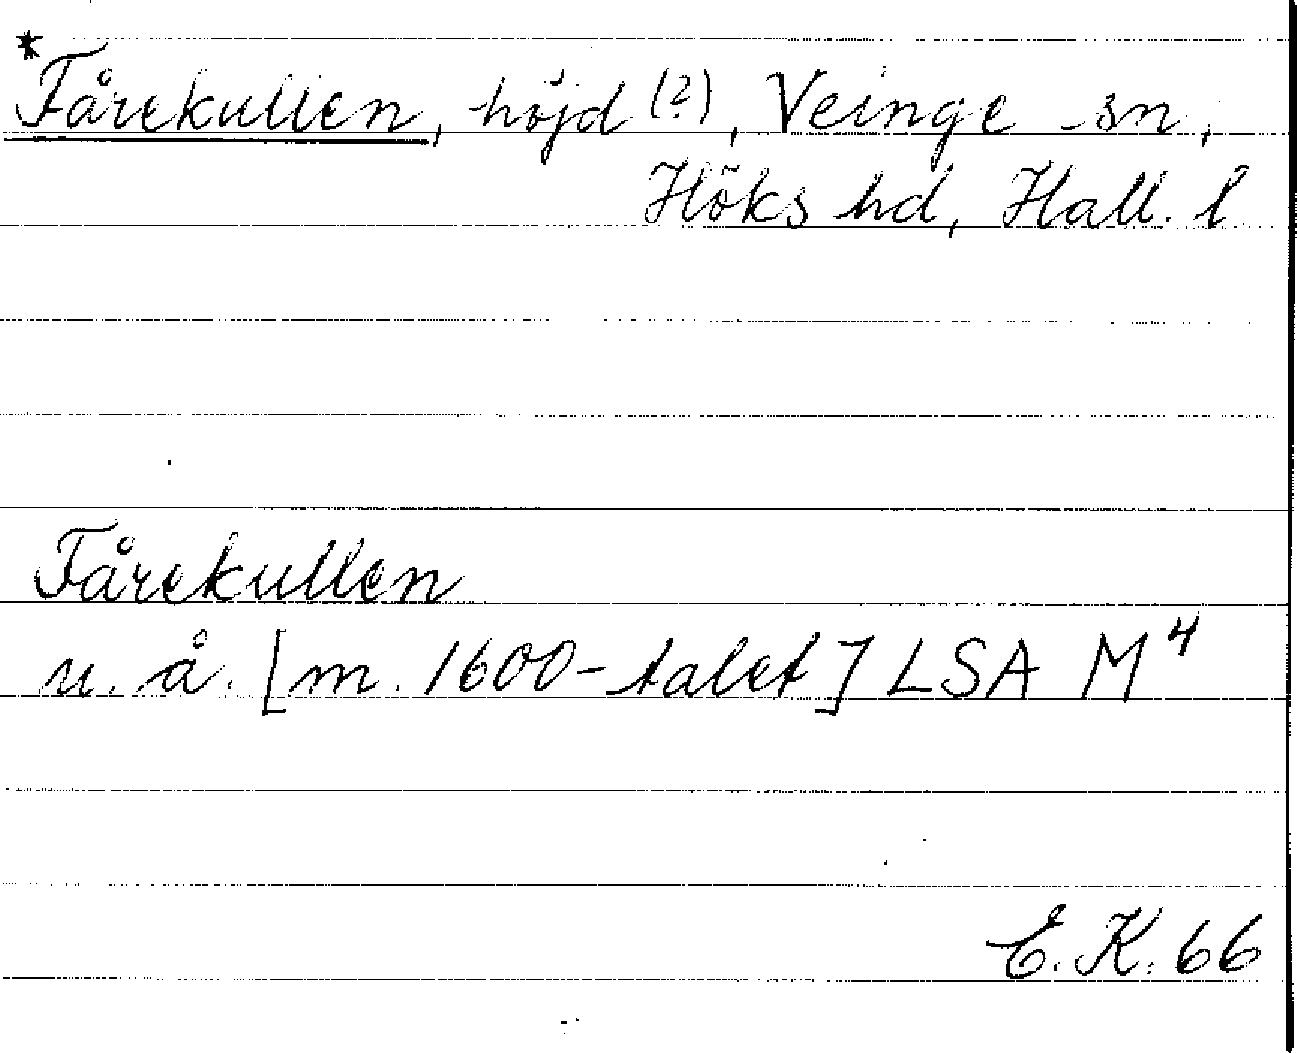 *Fårekullen, höjd (?), Veinge sn,
Höks hd, Hall. l
Fårekullen
u. å. [m. 1600-talet] LSA M⁴
E. K. 66